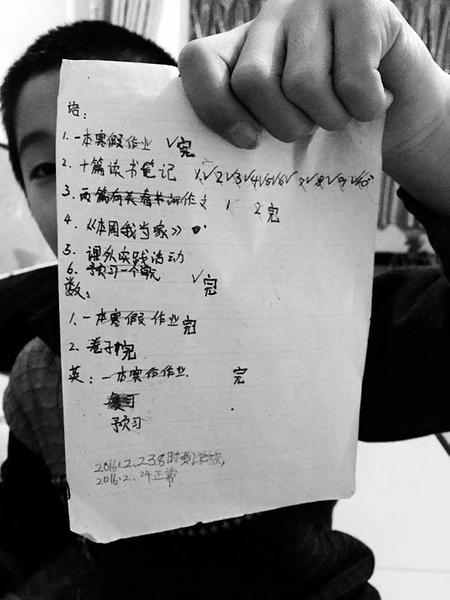 语:
1. 一本寒假作业 √完
2. 十篇读书笔记 1√2√3√4√5√6√7√8√9√10
3. 两篇有关春节作文 1 2完
4. 《本周我当家》
5. 课外实践活动
6. 预习一个单元 √完
数:
1. 一本寒假作业完
2. 卷子 完
英: 一本寒假作业. 完
复习
预习
2016.2.23 8时到学校,
2016.2.24正常